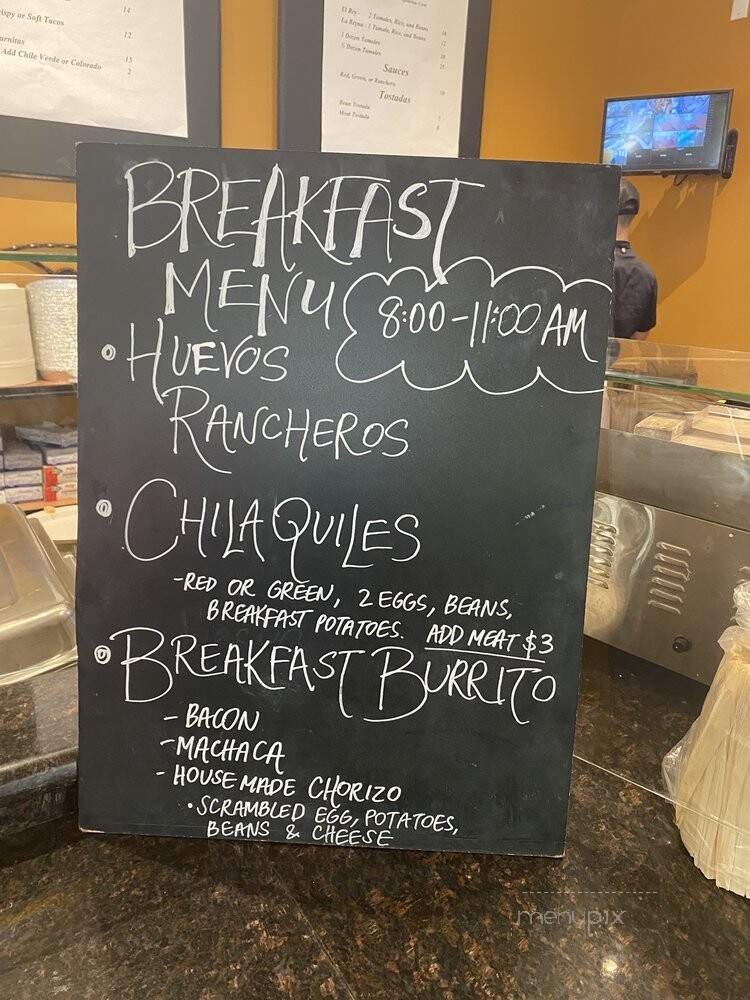 14
ispy or Soft Tacos
12
arnitas
13
Add Chile Verde or Colorado
2
El Rey - 2 Tamales, Rice, and Beans
La Reyna - 1 Tamale, Rice, and Beans
1 Dozen Tamales
½ Dozen Tamales
Sauces
Red, Green, or Ranchero
Tostadas
Bean Tostada
Meat Tostada
BREAKFAST
MENU
8:00-11:00 AM
HUEVOS
RANCHEROS
CHILAQUILES
-RED OR GREEN, 2 EGGS, BEANS,
BREAKFAST POTATOES. ADD MEAT $3
BREAKFAST BURRITO
- BACON
- MACHACA
- HOUSEMADE CHORIZO
• SCRAMBLED EGG, POTATOES,
BEANS & CHEESE
menupix